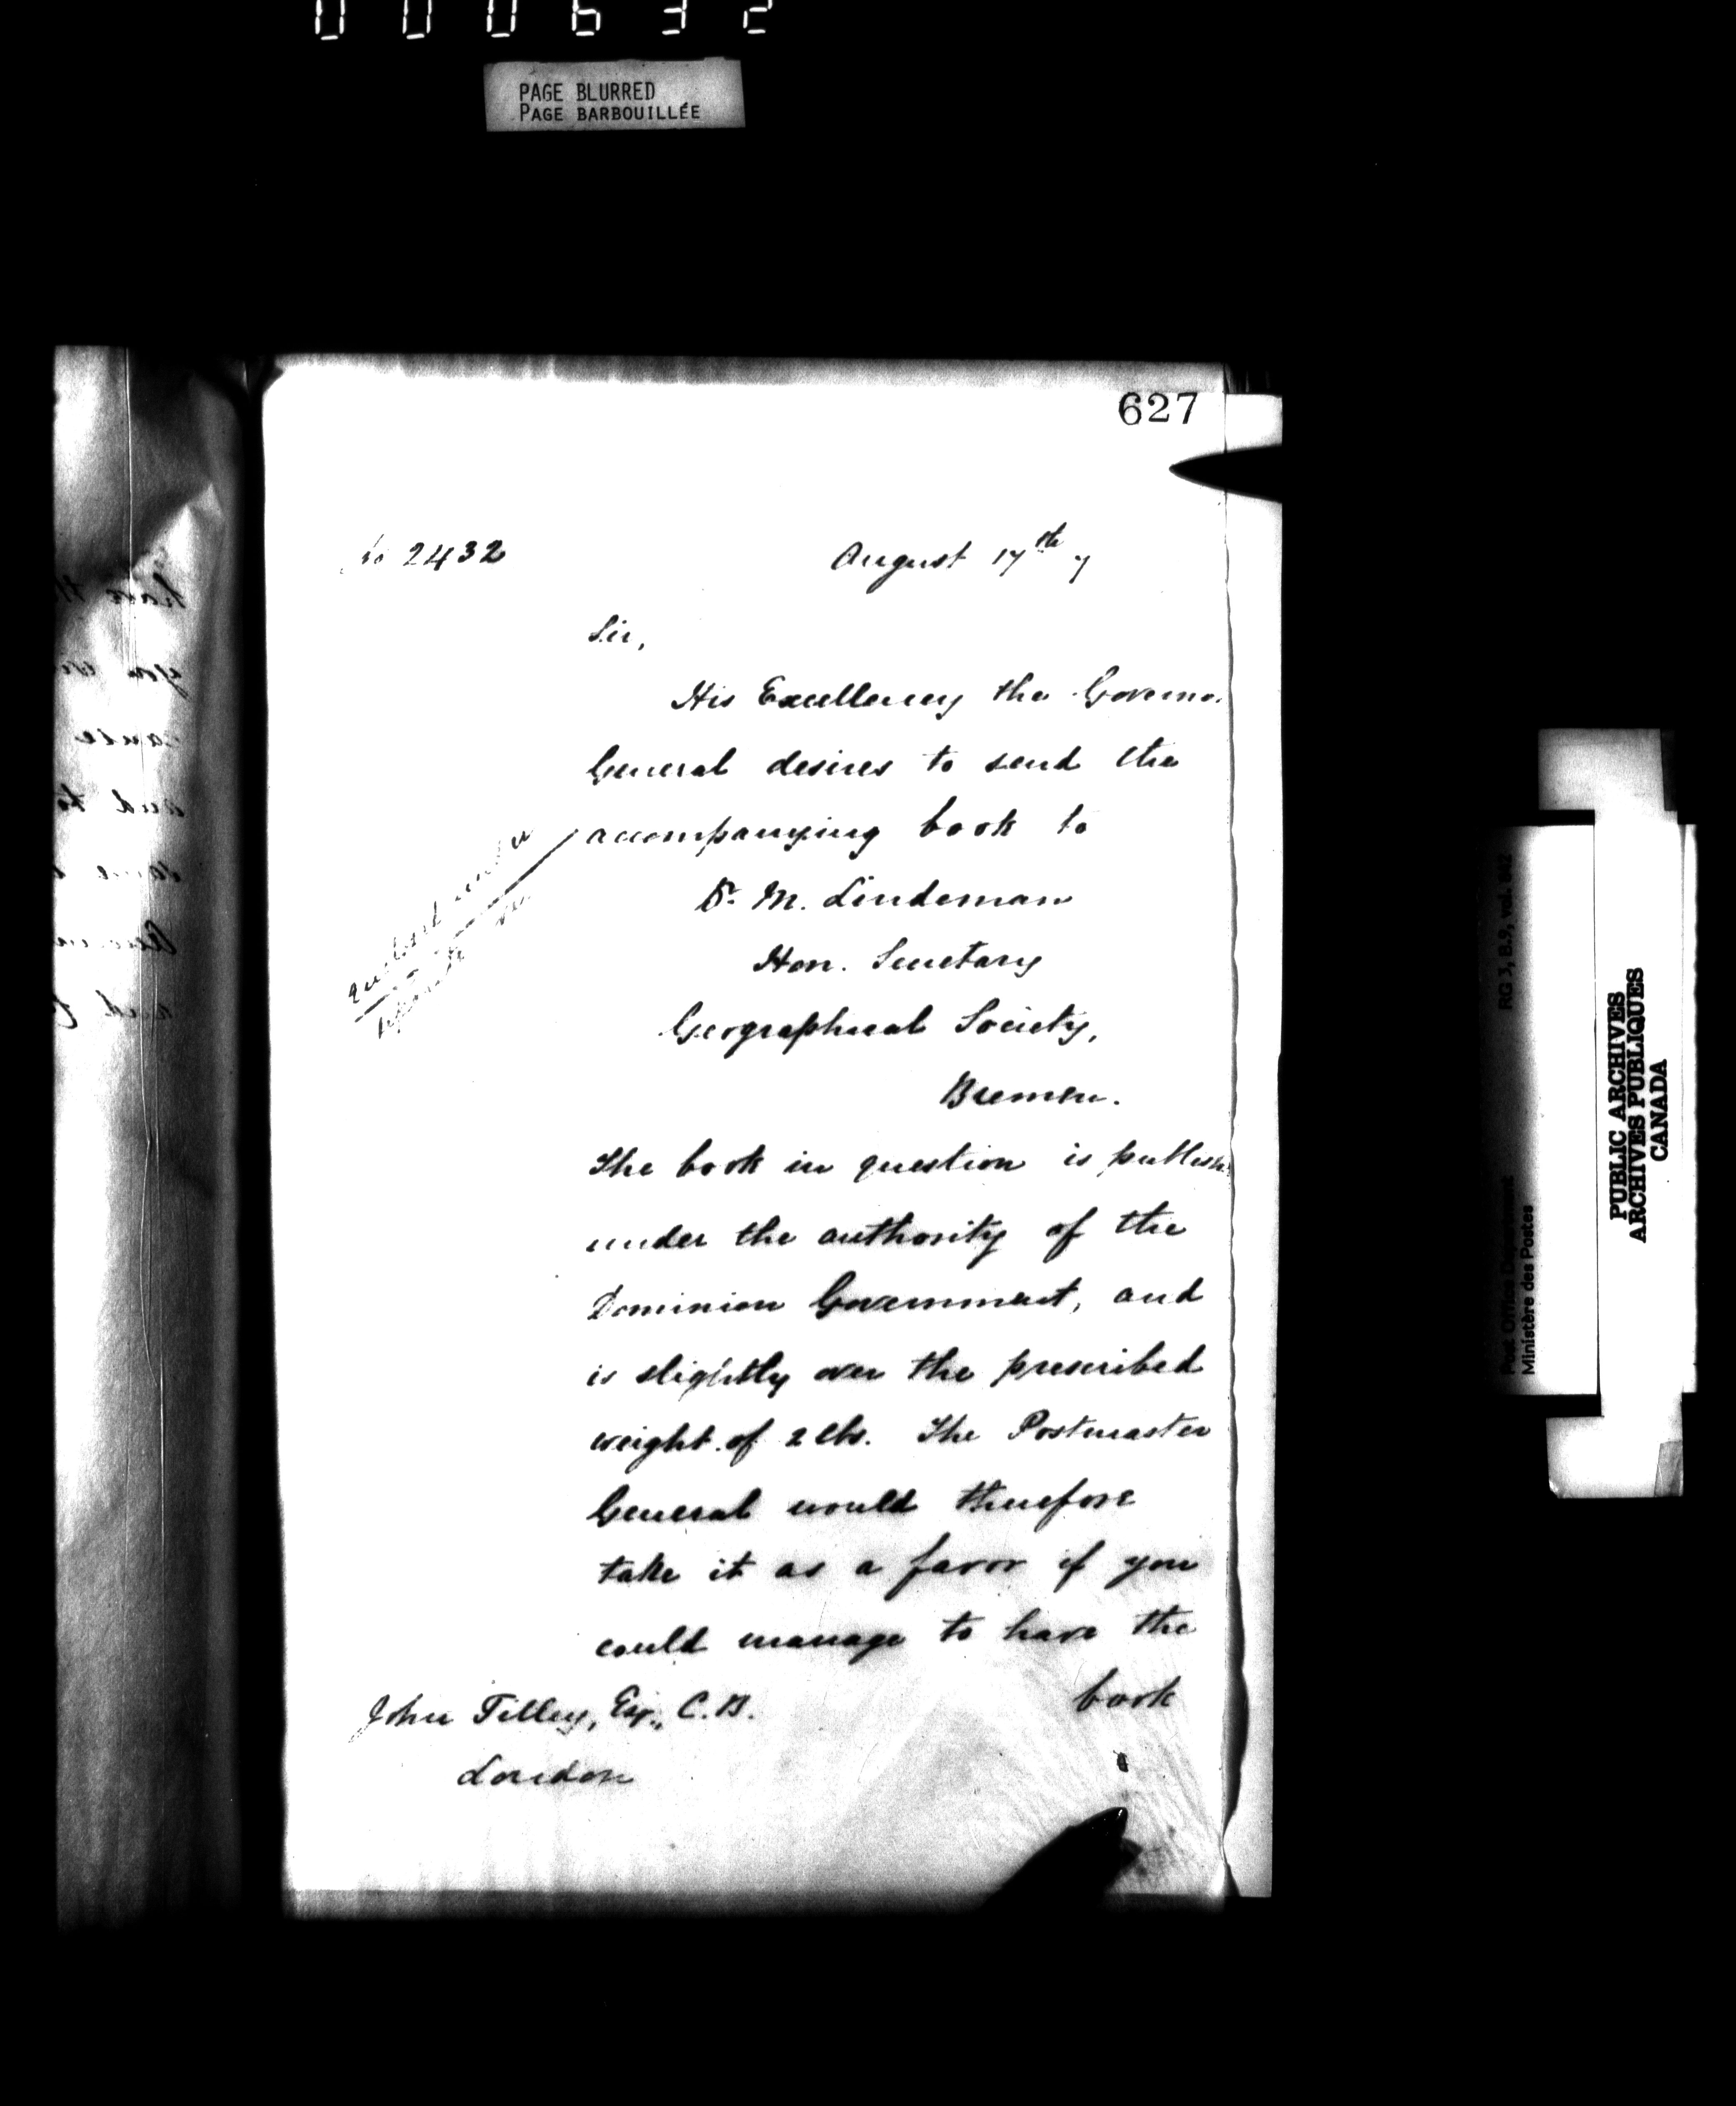 000632
PAGE BLURRED
PAGE BARBOUILLÉE
627
No 2432
August 17th 7
Sir,
His Excellency the Governo
General desires to send the
accompanying book to
Dr. M. Lindeman
Hon. Secretary
Geographical Society,
Bremen.
The book in question is publish
under the authority of the
Dominion Government, and
is slightly over the prescribed
weight of 2 lbs. The Postmaster
General would therefore
take it as a favor if you
could manage to have the
book
John Tilley, Esq., C.B.
London
RG 3, B.9, vol.
Post Office Department
Ministère des Postes
PUBLIC ARCHIVES
ARCHIVES PUBLIQUES
CANADA